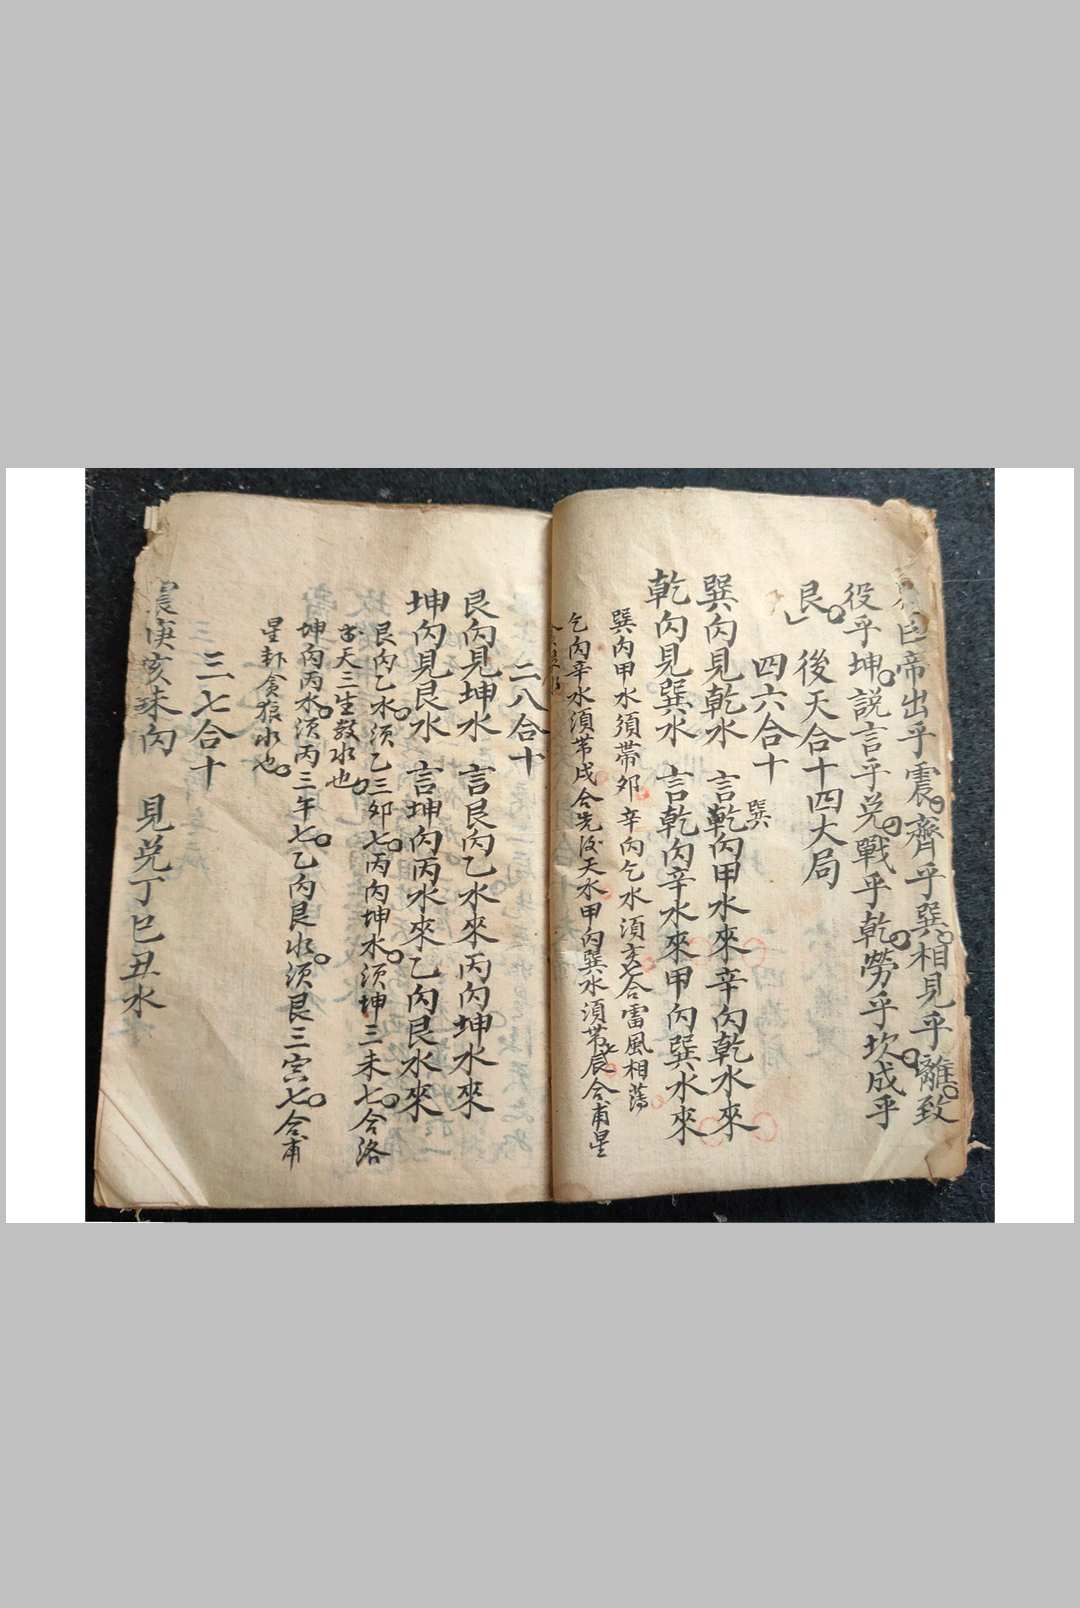 帝出乎震齊乎巽相見乎離致
役乎坤説言乎兑戰乎乾勞乎坎成乎
艮
後天合十四大局
四六合十
巽
巽向見乾水 言乾向甲水來辛向乾水來
乾向見巽水 言乾向辛水來甲向巽水來
巽向甲水須帶卯 辛向乞水須亥合雷風相薄
乞向辛水須帶戌合先後天水甲向巽水須帶辰合甫星
二八合十
艮向見坤水 言艮向乙水來丙向坤水來
坤向見艮水 言坤向丙水來乙向艮水來
艮向乙水須乙三卯七丙向坤水須坤三未七合洛
天三生数水也
坤向丙水須丙三午七乙向艮水須艮三寅七合甫
星卦貪狼水也
三七合十
震庚亥未向 見兑丁巳丑水